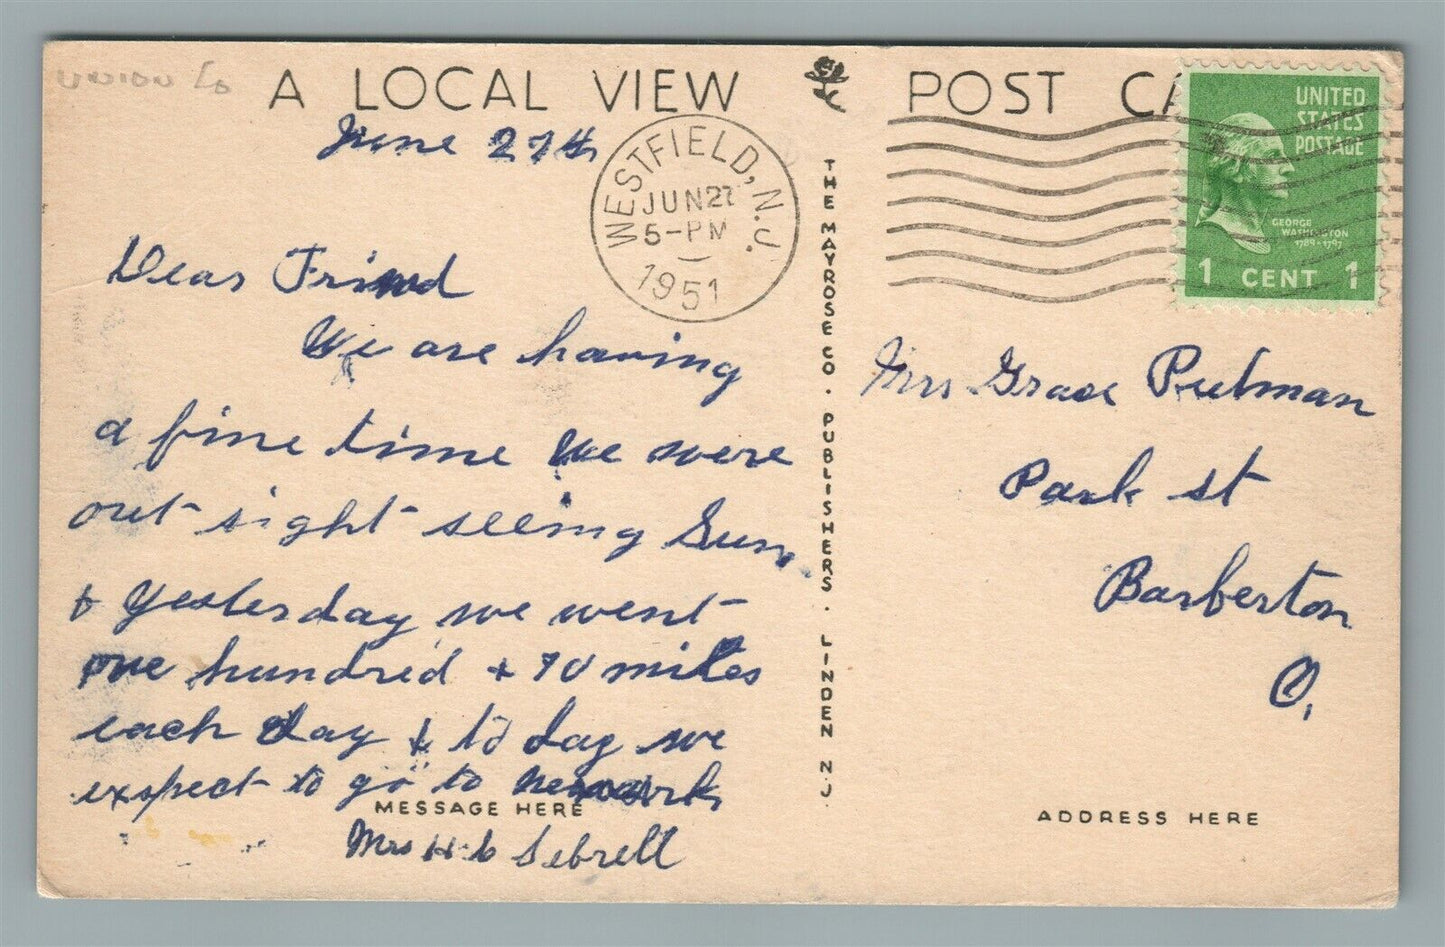 UNION Co
A LOCAL VIEW POST CA
June 27th
WESTFIELD, N.J.
JUN 27
5-PM
1951
UNITED
STATES
POSTAGE
GEORGE
WASHINGTON
1789-1797
1 CENT 1
Dear Friend
We are having
a fine time We were
out sight seeing Sun.
& yesterday we went
one hundred & 70 miles
each day & to day we
expect to go to newark
MESSAGE HERE
Mrs H. Sebrell
THE MAYROSE CO. PUBLISHERS. LINDEN N.J.
Mrs Grace Putman
Park st
Barberton
O,
ADDRESS HERE